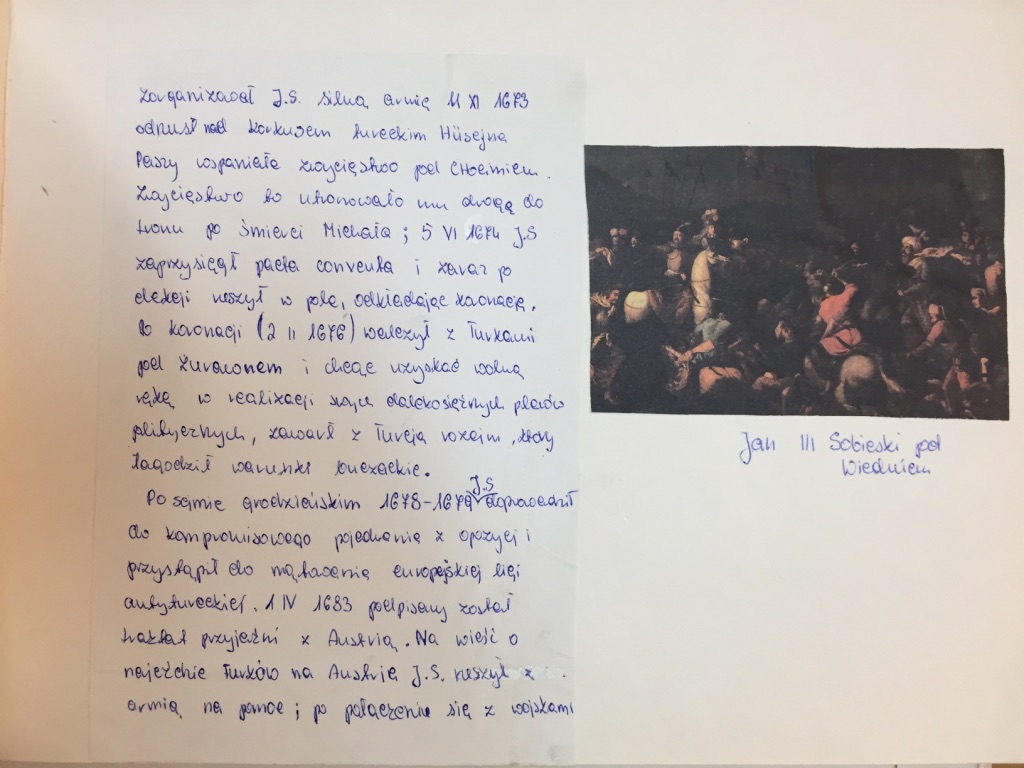 zorganizował J.S. silną armię 11 XI 1673
odniusł nad korkusem tureckim Hüsejna
Paszy wspaniałe zwycięstwo pod Chocimiem.
Zwycięstwo to utorowało mu drogę do
tronu po śmierci Michała; 5 VI 1674 J.S
zaprzysiągł pacta conventa i zaraz po
elekcji ruszył w pole, odkładając koronację.
Po koronacji (2 II 1676) walczył z Turkami
pod Żurawnem i chcąc uzyskać wolną
rękę w realizacji swych dalekosiężnych planów
plitycznych, zawarł z Turcją rozejm, który
łagodził warunki buczackie.
Po sejmie grodzieńskim 1678-1679 J.S doprowadził
do kompromisowego pojednania z opozycj i
przystąpił do
europejskiej ligi
antytureckiej. 1 IV 1683 podpisany został
traktat przyjaźni z Austrią. Na wieść o
najeździe Turków na Austrię J.S. ruszył z
armią na pomoc; po połączeniu się z wojskami
Jan III Sobieski pod
Wiedniem